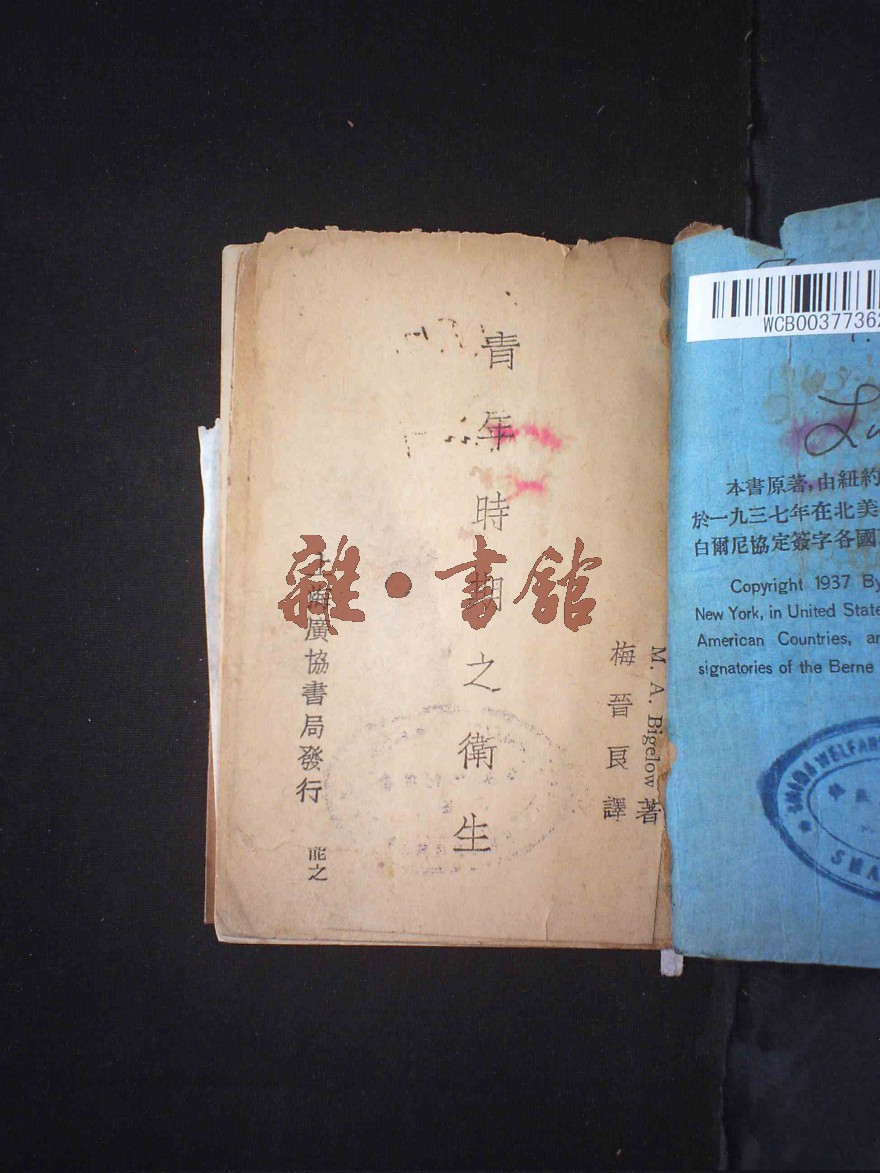 M. A. Bigelow 著
梅晉良譯
青年時期之衛生
上海廣協書局發行
能之
雜·書館
WCB00377362
本書原著,由紐約
於一九三七年在北美
白爾尼協定簽字各國
Copyright 1937 By
New York, in United State
American Countries, an
signatories of the Berne
WELFAR
SHA